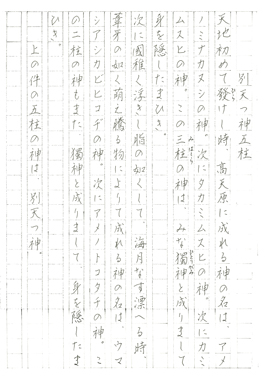 別天つ神五柱
天地初めて發けし時、高天原に成れる神の名は、アメ
ノミナカヌシの神。次にタカミムスヒの神。次にカミ
ムスヒの神。この三柱の神は、みな獨神と成りまして、
身を隱したまひき。
次に國稚く浮きし脂の如くして、海月なす漂へる時、
葦牙の如く萌え騰る物によりて成れる神の名は、ウマ
シアシカビヒコヂの神。次にアメノトコタチの神。こ
の二柱の神もまた、獨神と成りまして、身を隱したま
ひき。
上の件の五柱の神は、別天つ神。